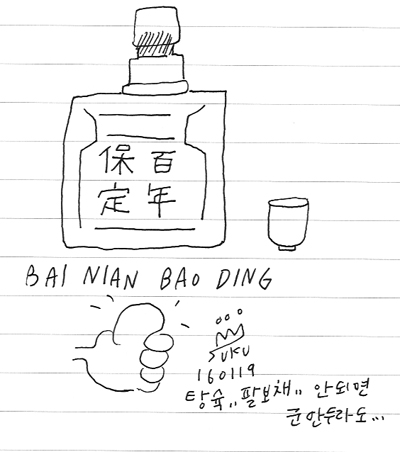 百年
保定
BAI NIAN BAO DING
SUKU
160119
탕슉,, 팔보채,, 안되면
군만두라도...